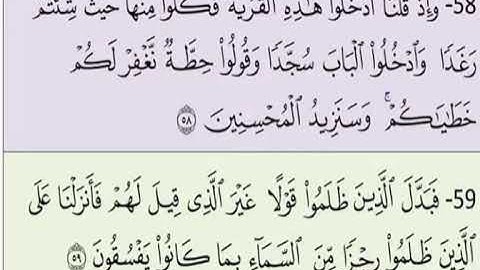 58- وَإِذْ قُلْنَا ٱدْخُلُوا۟ هَٰذِهِ ٱلْقَرْيَةَ فَكُلُوا۟ مِنْهَا حَيْثُ شِئْتُمْ
رَغَدًا وَٱدْخُلُوا۟ ٱلْبَابَ سُجَّدًا وَقُولُوا۟ حِطَّةٌ نَّغْفِرْ لَكُمْ
خَطَٰيَٰكُمْ ۚ وَسَنَزِيدُ ٱلْمُحْسِنِينَ ٥٨
59- فَبَدَّلَ ٱلَّذِينَ ظَلَمُوا۟ قَوْلًا غَيْرَ ٱلَّذِى قِيلَ لَهُمْ فَأَنزَلْنَا عَلَى
ٱلَّذِينَ ظَلَمُوا۟ رِجْزًا مِّنَ ٱلسَّمَآءِ بِمَا كَانُوا۟ يَفْسُقُونَ ٥٩